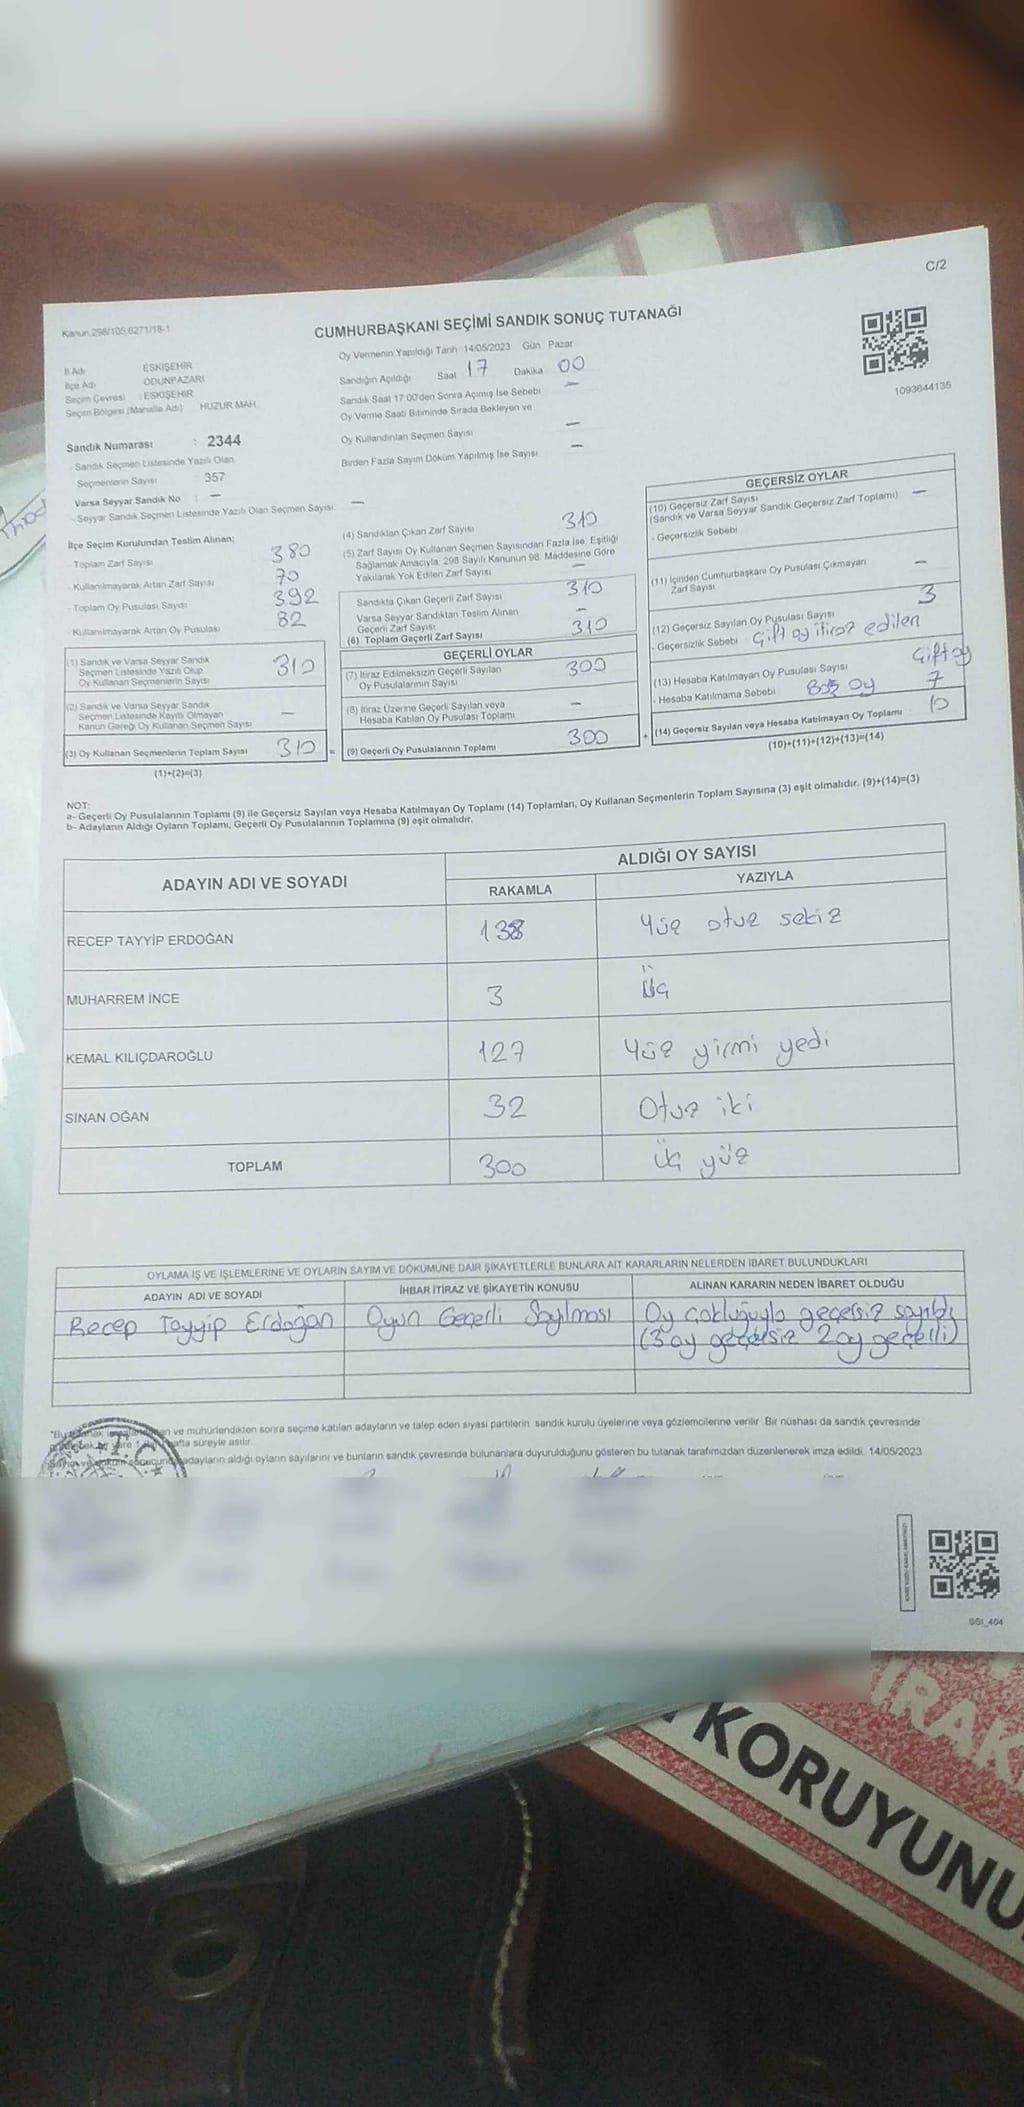 C/2
Kanun 298/105,6271/18-1
CUMHURBAŞKANI SEÇİMİ SANDIK SONUÇ TUTANAĞI
1093644135
İl Adı ESKİŞEHİR
İlçe Adı ODUNPAZARI
Seçim Çevresi : ESKİŞEHİR
Seçim Bölgesi (Mahalle Adı) HUZUR MAH.
Sandık Numarası : 2344
- Sandık Seçmen Listesinde Yazılı Olan
Seçmenlerin Sayısı : 357
Varsa Seyyar Sandık No : —
- Seyyar Sandık Seçmen Listesinde Yazılı Olan Seçmen Sayısı: —
Oy Vermenin Yapıldığı Tarih 14/05/2023 Gün Pazar
Sandığın Açıldığı Saat 17 Dakika 00
Sandık Saat 17.00'den Sonra Açımış İse Sebebi —
Oy Verme Saati Bitiminde Sırada Bekleyen ve
Oy Kullandırılan Seçmen Sayısı —
Birden Fazla Sayım Döküm Yapılmış İse Sayısı —
İlçe Seçim Kurulundan Teslim Alınan:
Toplam Zarf Sayısı 380
- Kullanılmayarak Artan Zarf Sayısı 70
- Toplam Oy Pusulası Sayısı 392
- Kullanılmayarak Artan Oy Pusulası 82
(1) Sandık ve Varsa Seyyar Sandık
Seçmen Listesinde Yazılı Olup
Oy Kullanan Seçmenlerin Sayısı 310
(2) Sandık ve Varsa Seyyar Sandık
Seçmen Listesinde Kayıtlı Olmayan
Kanun Gereği Oy Kullanan Seçmen Sayısı —
(3) Oy Kullanan Seçmenlerin Toplam Sayısı 310 =
(1)+(2)=(3)
(4) Sandıktan Çıkan Zarf Sayısı 310
(5) Zarf Sayısı Oy Kullanan Seçmen Sayısından Fazla İse, Eşitliği
Sağlamak Amacıyla, 298 Sayılı Kanunun 98. Maddesine Göre
Yakılarak Yok Edilen Zarf Sayısı —
Sandıkta Çıkan Geçerli Zarf Sayısı 310
Varsa Seyyar Sandıktan Teslim Alınan
Geçerli Zarf Sayısı —
(6) Toplam Geçerli Zarf Sayısı 310
GEÇERLİ OYLAR
(7) İtiraz Edilmeksizin Geçerli Sayılan
Oy Pusulalarının Sayısı 300
(8) İtiraz Üzerine Geçerli Sayılan veya
Hesaba Katılan Oy Pusulası Toplamı —
(9) Geçerli Oy Pusulalarının Toplamı 300 +
GEÇERSİZ OYLAR
(10) Geçersiz Zarf Sayısı
(Sandık ve Varsa Seyyar Sandık Geçersiz Zarf Toplamı) —
- Geçersizlik Sebebi
(11) İçinden Cumhurbaşkanı Oy Pusulası Çıkmayan
Zarf Sayısı —
(12) Geçersiz Sayılan Oy Pusulası Sayısı 3
- Geçersizlik Sebebi Çift oy itiraz edilen
Çift oy
(13) Hesaba Katılmayan Oy Pusulası Sayısı 7
- Hesaba Katılmama Sebebi Boş oy
(14) Geçersiz Sayılan veya Hesaba Katılmayan Oy Toplamı 10
(10)+(11)+(12)+(13)=(14)
NOT:
a- Geçerli Oy Pusulalarının Toplamı (9) ile Geçersiz Sayılan veya Hesaba Katılmayan Oy Toplamı (14) Toplamları, Oy Kullanan Seçmenlerin Toplam Sayısına (3) eşit olmalıdır. (9)+(14)=(3)
b- Adayların Aldığı Oyların Toplamı, Geçerli Oy Pusulalarının Toplamına (9) eşit olmalıdır.
ADAYIN ADI VE SOYADI ALDIĞI OY SAYISI
RAKAMLA YAZIYLA
RECEP TAYYİP ERDOĞAN 138 Yüz otuz sekiz
MUHARREM İNCE 3 Üç
KEMAL KILIÇDAROĞLU 127 Yüz yirmi yedi
SİNAN OĞAN 32 Otuz iki
TOPLAM 300 Üç yüz
OYLAMA İŞ VE İŞLEMLERİNE VE OYLARIN SAYIM VE DÖKÜMÜNE DAİR ŞİKAYETLERLE BUNLARA AİT KARARLARIN NELERDEN İBARET BULUNDUKLARI
ADAYIN ADI VE SOYADI İHBAR İTİRAZ VE ŞİKAYETİN KONUSU ALINAN KARARIN NEDEN İBARET OLDUĞU
Recep Tayyip Erdoğan Oyun Geçerli Sayılması Oy çokluğuyla geçersiz sayıldı
(3 oy geçersiz 2 oy geçerli)
ve mühürlendikten sonra seçime katılan adayların ve talep eden siyasi partilerin sandık kurulu üyelerine veya gözlemcilerine verilir. Bir nüshası da sandık çevresinde
hafta süreyle asılır.
adayların aldığı oyların sayılarını ve bunların sandık çevresinde bulunanlara duyurulduğunu gösteren bu tutanak tarafımızdan düzenlenerek imza edildi. 14/05/2023
T.C.
SSI_404
KORUYUNU